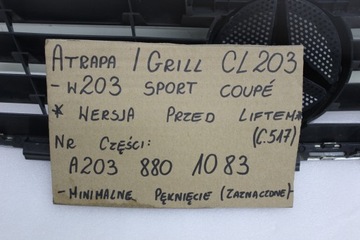 ATRAPA / GRILL CL203
- W203 SPORT COUPÉ
* WERSJA PRZED LIFTEM
(C.517)
NR CZĘŚCI:
A203 880 1083
- MINIMALNE PĘKNIĘCIE (ZAZNACZONE) -